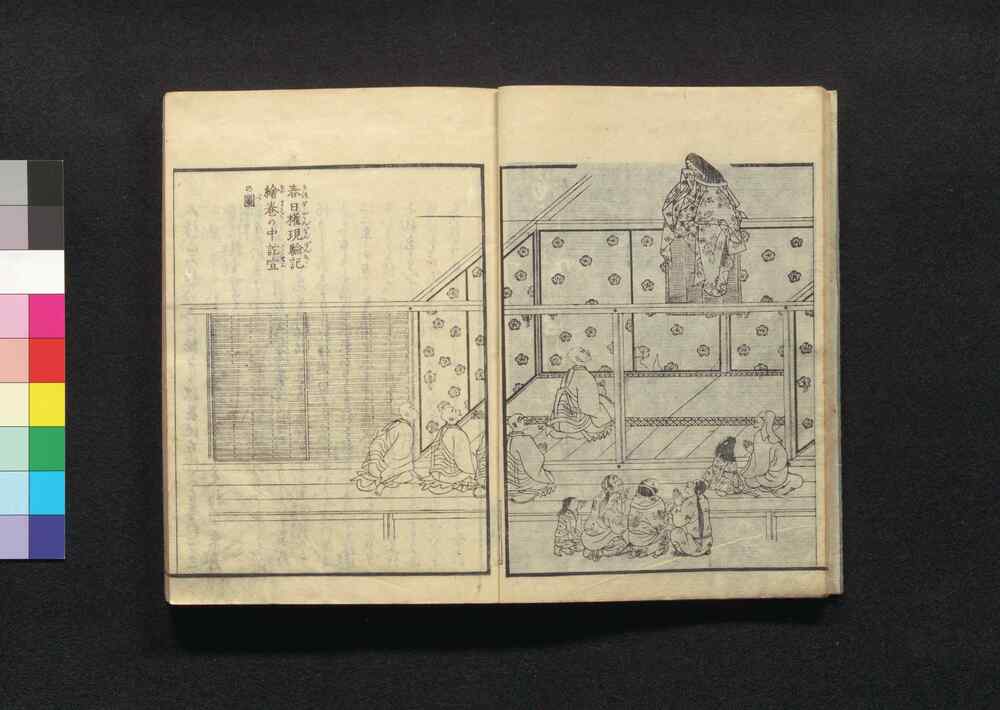 春日権現験記
繪巻の中託宣
の圖